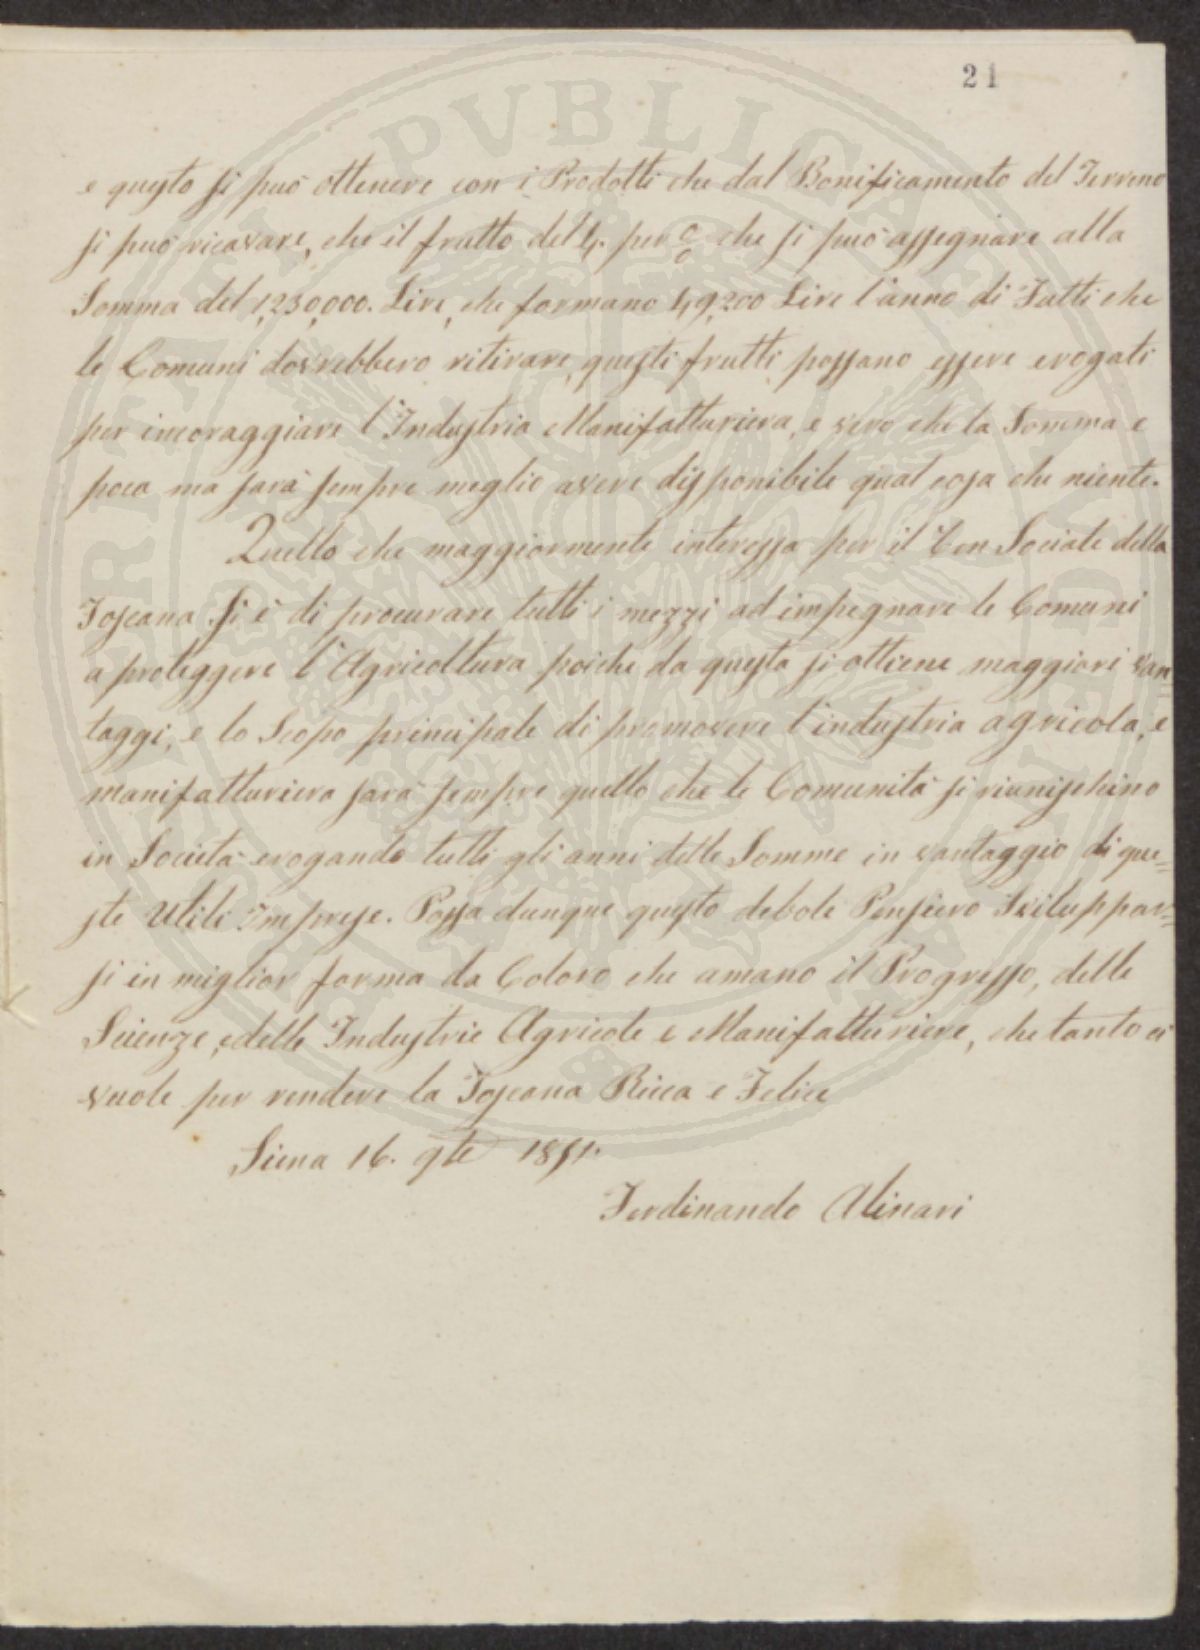 21
e questo si può ottenere con i Prodotti che dal Bonificamento del Terreno
si può ricavare, che il frutto del 4. per % che si può assegnare alla
Somma del 1,230,000. Lire, che formano 49,200 Lire l'anno di Fatti che
le Comuni dovrebbero ritirare, questi frutti possano essere erogati
per incoraggiare l'Industria Manifatturiera, e vero che la Somma e
poca ma sarà sempre meglio avere disponibile qual cosa che niente.
Quello che maggiormente interessa per il Ben Sociale della
Toscana si è di procurare tutti i mezzi ad impegnare le Comuni
a proteggere l'Agricoltura poiche da questa si ottiene maggiori van-
taggi, e lo Scopo principale di promovere l'industria agricola, e
manifatturiera sarà sempre quello che le Comunità si riunischino
in Società erogando tutti gli anni delle Somme in vantaggio di que=
ste Utili Imprese. Possa dunque questo debole Pensiero Sviluppar=
si in miglior forma da Coloro che amano il Progresso, delle
Scienze, e delle Industrie Agricole e Manifatturiere, che tanto ci
vuole per rendere la Toscana Ricca e Felice
Siena 16. 9bre 1851.
Ferdinando Alinari